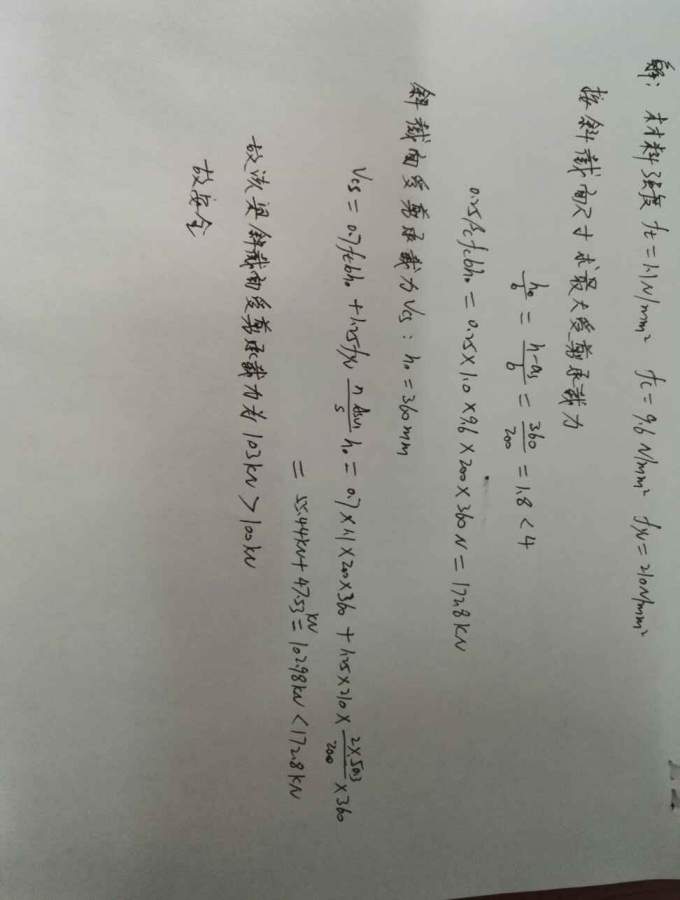 解: 材料强度 ft=1.1N/mm² fc=9.6N/mm² fyv=210N/mm²
按斜截面尺寸求最大受剪承载力
h₀/b = (h-as)/b = 360/200 = 1.8 < 4
0.25βcfcbh₀ = 0.25×1.0×9.6×200×360N = 172.8kN
斜截面受剪承载力Vcs: h₀=360mm
Vcs = 0.7ftbh₀ + 1.25fyv (nAsv1/s) h₀ = 0.7×1.1×200×360 + 1.25×210× (2×50.3/200) ×360
= 55.44kN + 47.53kN = 102.98kN < 172.8kN
故该梁斜截面受剪承载力为103kN > 100kN
故安全